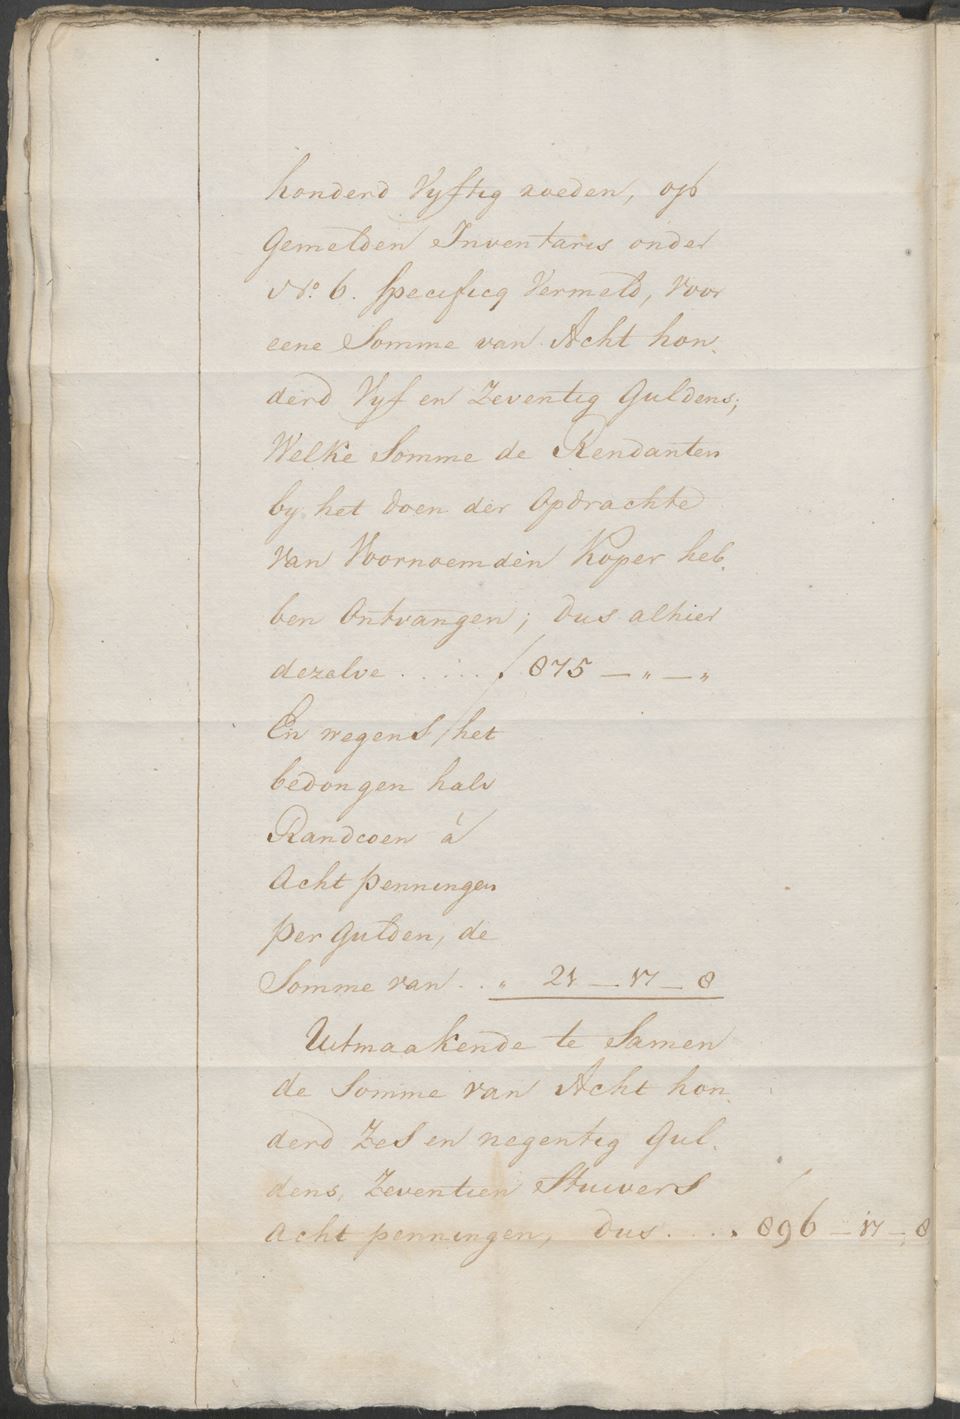 honderd Vyftig roeden, op
Gemelden Inventaris onder
No. 6. Specificq Vermeld, voor
eene Somme van Acht hon-
derd Vyf en Zeventig Guldens;
Welke Somme de Rendanten
by het doen der Opdrachte
van Voornoemden Koper heb-
ben Ontvangen; dus alhier
dezelve . . . . . . ƒ 875 — " — "
En wegens het
bedongen halv
Randcoen á
Acht penningen
per Gulden, de
Somme van . . " 21 — 17 — 8
Uitmaakende te Samen
de Somme van Acht hon-
derd Zes en negentig Gul-
dens, Zeventien Stuivers
Acht penningen, dus . . . . 896 — 17 — 8